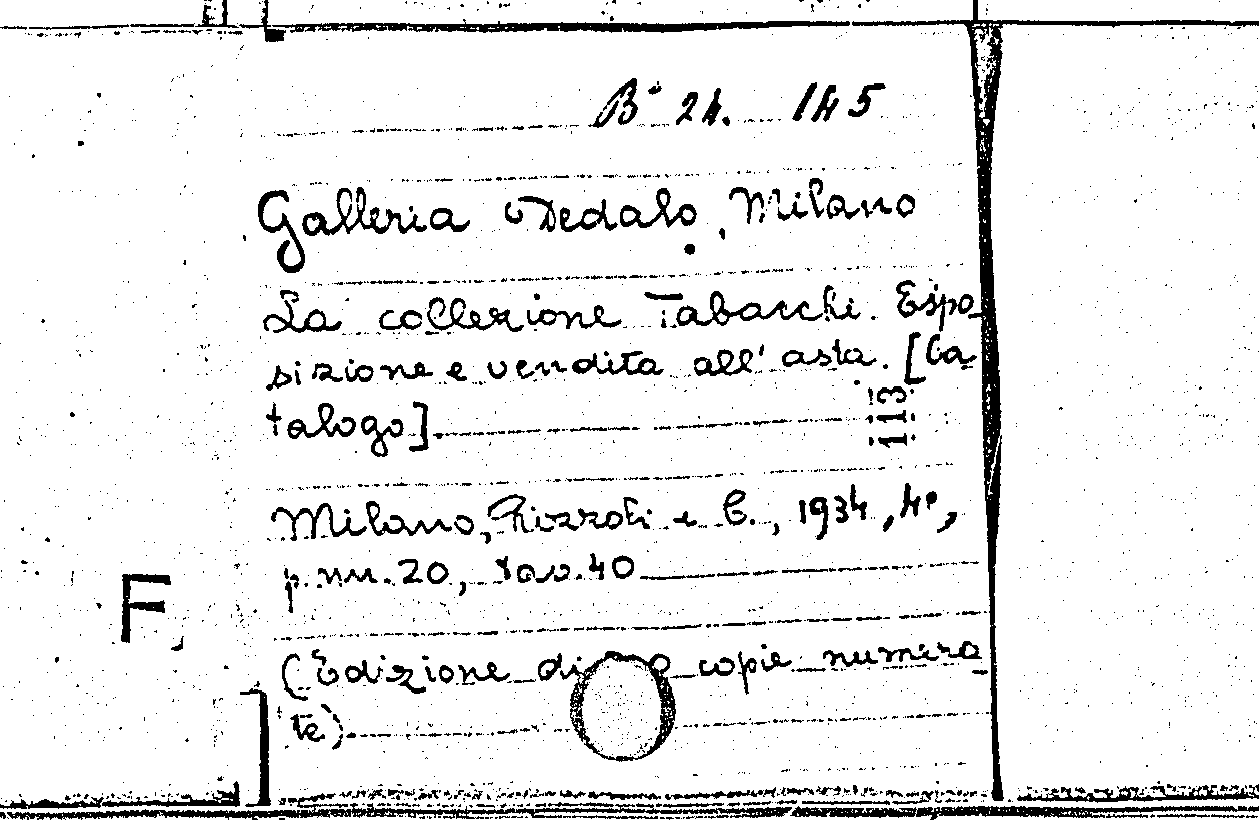 B° 24. 145
Galleria Dedalo, Milano
La collezione Tabacchi. Espo-
sizione e vendita all'asta. [Ca-
talogo]
113
Milano, Rizzoli e C., 1934, 4°,
p.nn. 20, tav. 40
F
(Edizione di copie numera-
te)